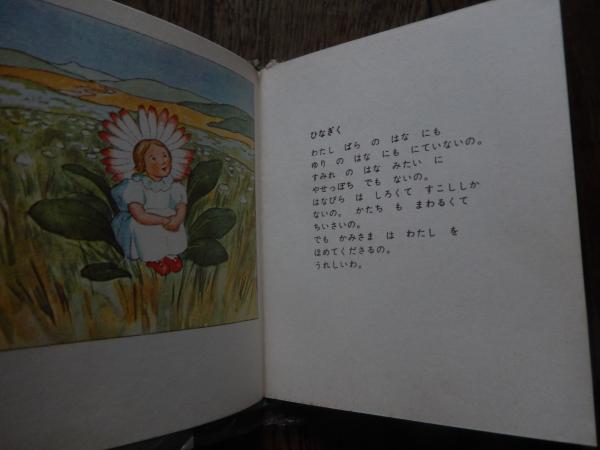 ひなぎく
わたし ばら の はな にも
ゆり の はな にも にていないの。
すみれ の はな みたい に
やせっぽち でも ないの。
はなびら は しろくて すこししか
ないの。 かたち も まわるくて
ちいさいの。
でも かみさま は わたし を
ほめてくださるの。
うれしいわ。